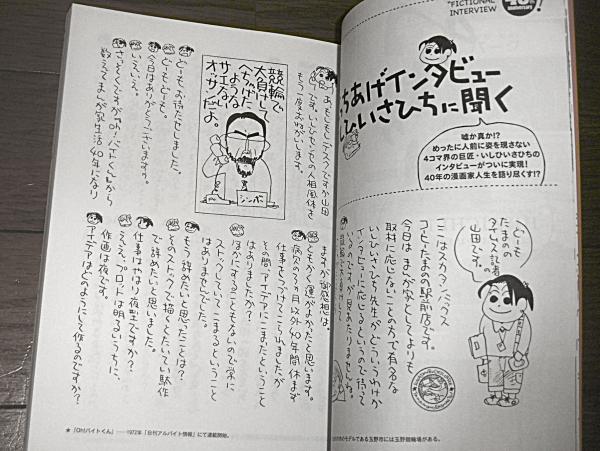 "FICTIONAL
INTERVIEW
40th
ちあげインタビュー
ひいさひちに聞く
嘘か真か!?
めったに人前に姿を現さない
4コマ界の巨匠・いしひいさひちの
インタビューがついに実現!
40年の漫画家人生を語り尽くす!?
どーも
たまのの
タイムス記者の
山田です。
ここはスカタンバックス
コーヒーたまの駅前店です。
今日はまんが家としてよりも
取材に応じないことの方で有名な
いしいひさいち先生がどういうわけか
インタビューに応じるというので待って
のモデルである玉野市には玉野競輪場がある。
あもしもしデスクですか山田
です。いしいひさいちの人相風体を
もう一度おねがいします。
競輪で
大負けして
へたばった
ような
サイテーな
オッサンだよ。
シンボ
どーもお待たせしました。
どーもどーも。
今日はありがとうございます。
いえいえ。
さっそくですが「Oh!バイトくん」から
数えてまんが家生活40年になり
ますが御感想は。
ともかく運がよかったと思います。
病欠の3ヵ月以外40年間休まず
仕事をつづけてこられましたが
その間、アイデアにこまったということ
はありましたか?
ほかにすることもないので常に
ストックしていてこまるということ
はありませんでした。
もう辞めたいと思ったことは?
そのストックで描くとたいてい駄作
で辞めたいと思いました。
仕事はやはり夜型ですか?
ええ、プロットは明るいうちに、
作画は夜です。
アイデアはどのようにして作るのですか?
★「Oh!バイトくん」——1972年「日刊アルバイト情報」にて連載開始。